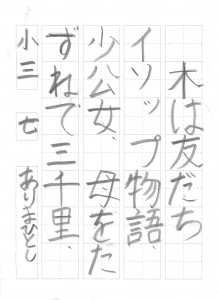 本は友だち
イソップ物語、
少公女、母をた
ずねて三千里、
小三 七 ありまひとし